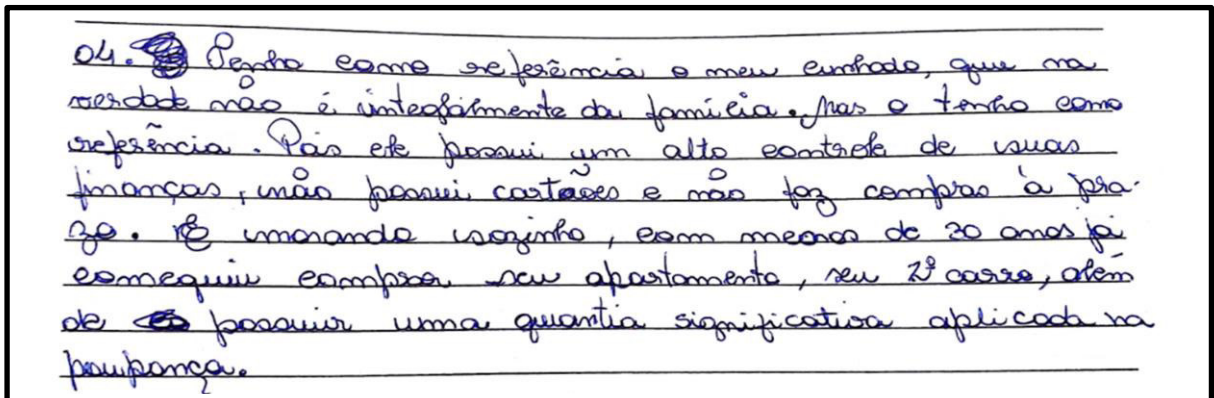 04. Tenho como referência o meu cunhado, que na
verdade não é integralmente da família. Mas o tenho como
referência. Pois ele possui um alto controle de suas
finanças, não possui cartões e não faz compras à pra-
zo. E morando sozinho, com menos de 30 anos já
conseguiu comprar seu apartamento, seu 2º carro, além
de possuir uma quantia significativa aplicada na
poupança.